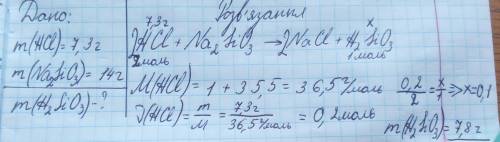 Дано:
m(HCl)=7,3г
m(Na₂SiO₃)=14г
m(H₂SiO₃)-?
Розв'язання
7,3г x
2HCl+Na₂SiO₃→2NaCl+H₂SiO₃
2моль 1моль
M(HCl)=1+35,5=36,5г/моль 0,2/2=x/1=>x=0,1
ν(HCl)=m/M=7,3г/36,5г/моль=0,2моль
m(H₂SiO₃)=7,8г